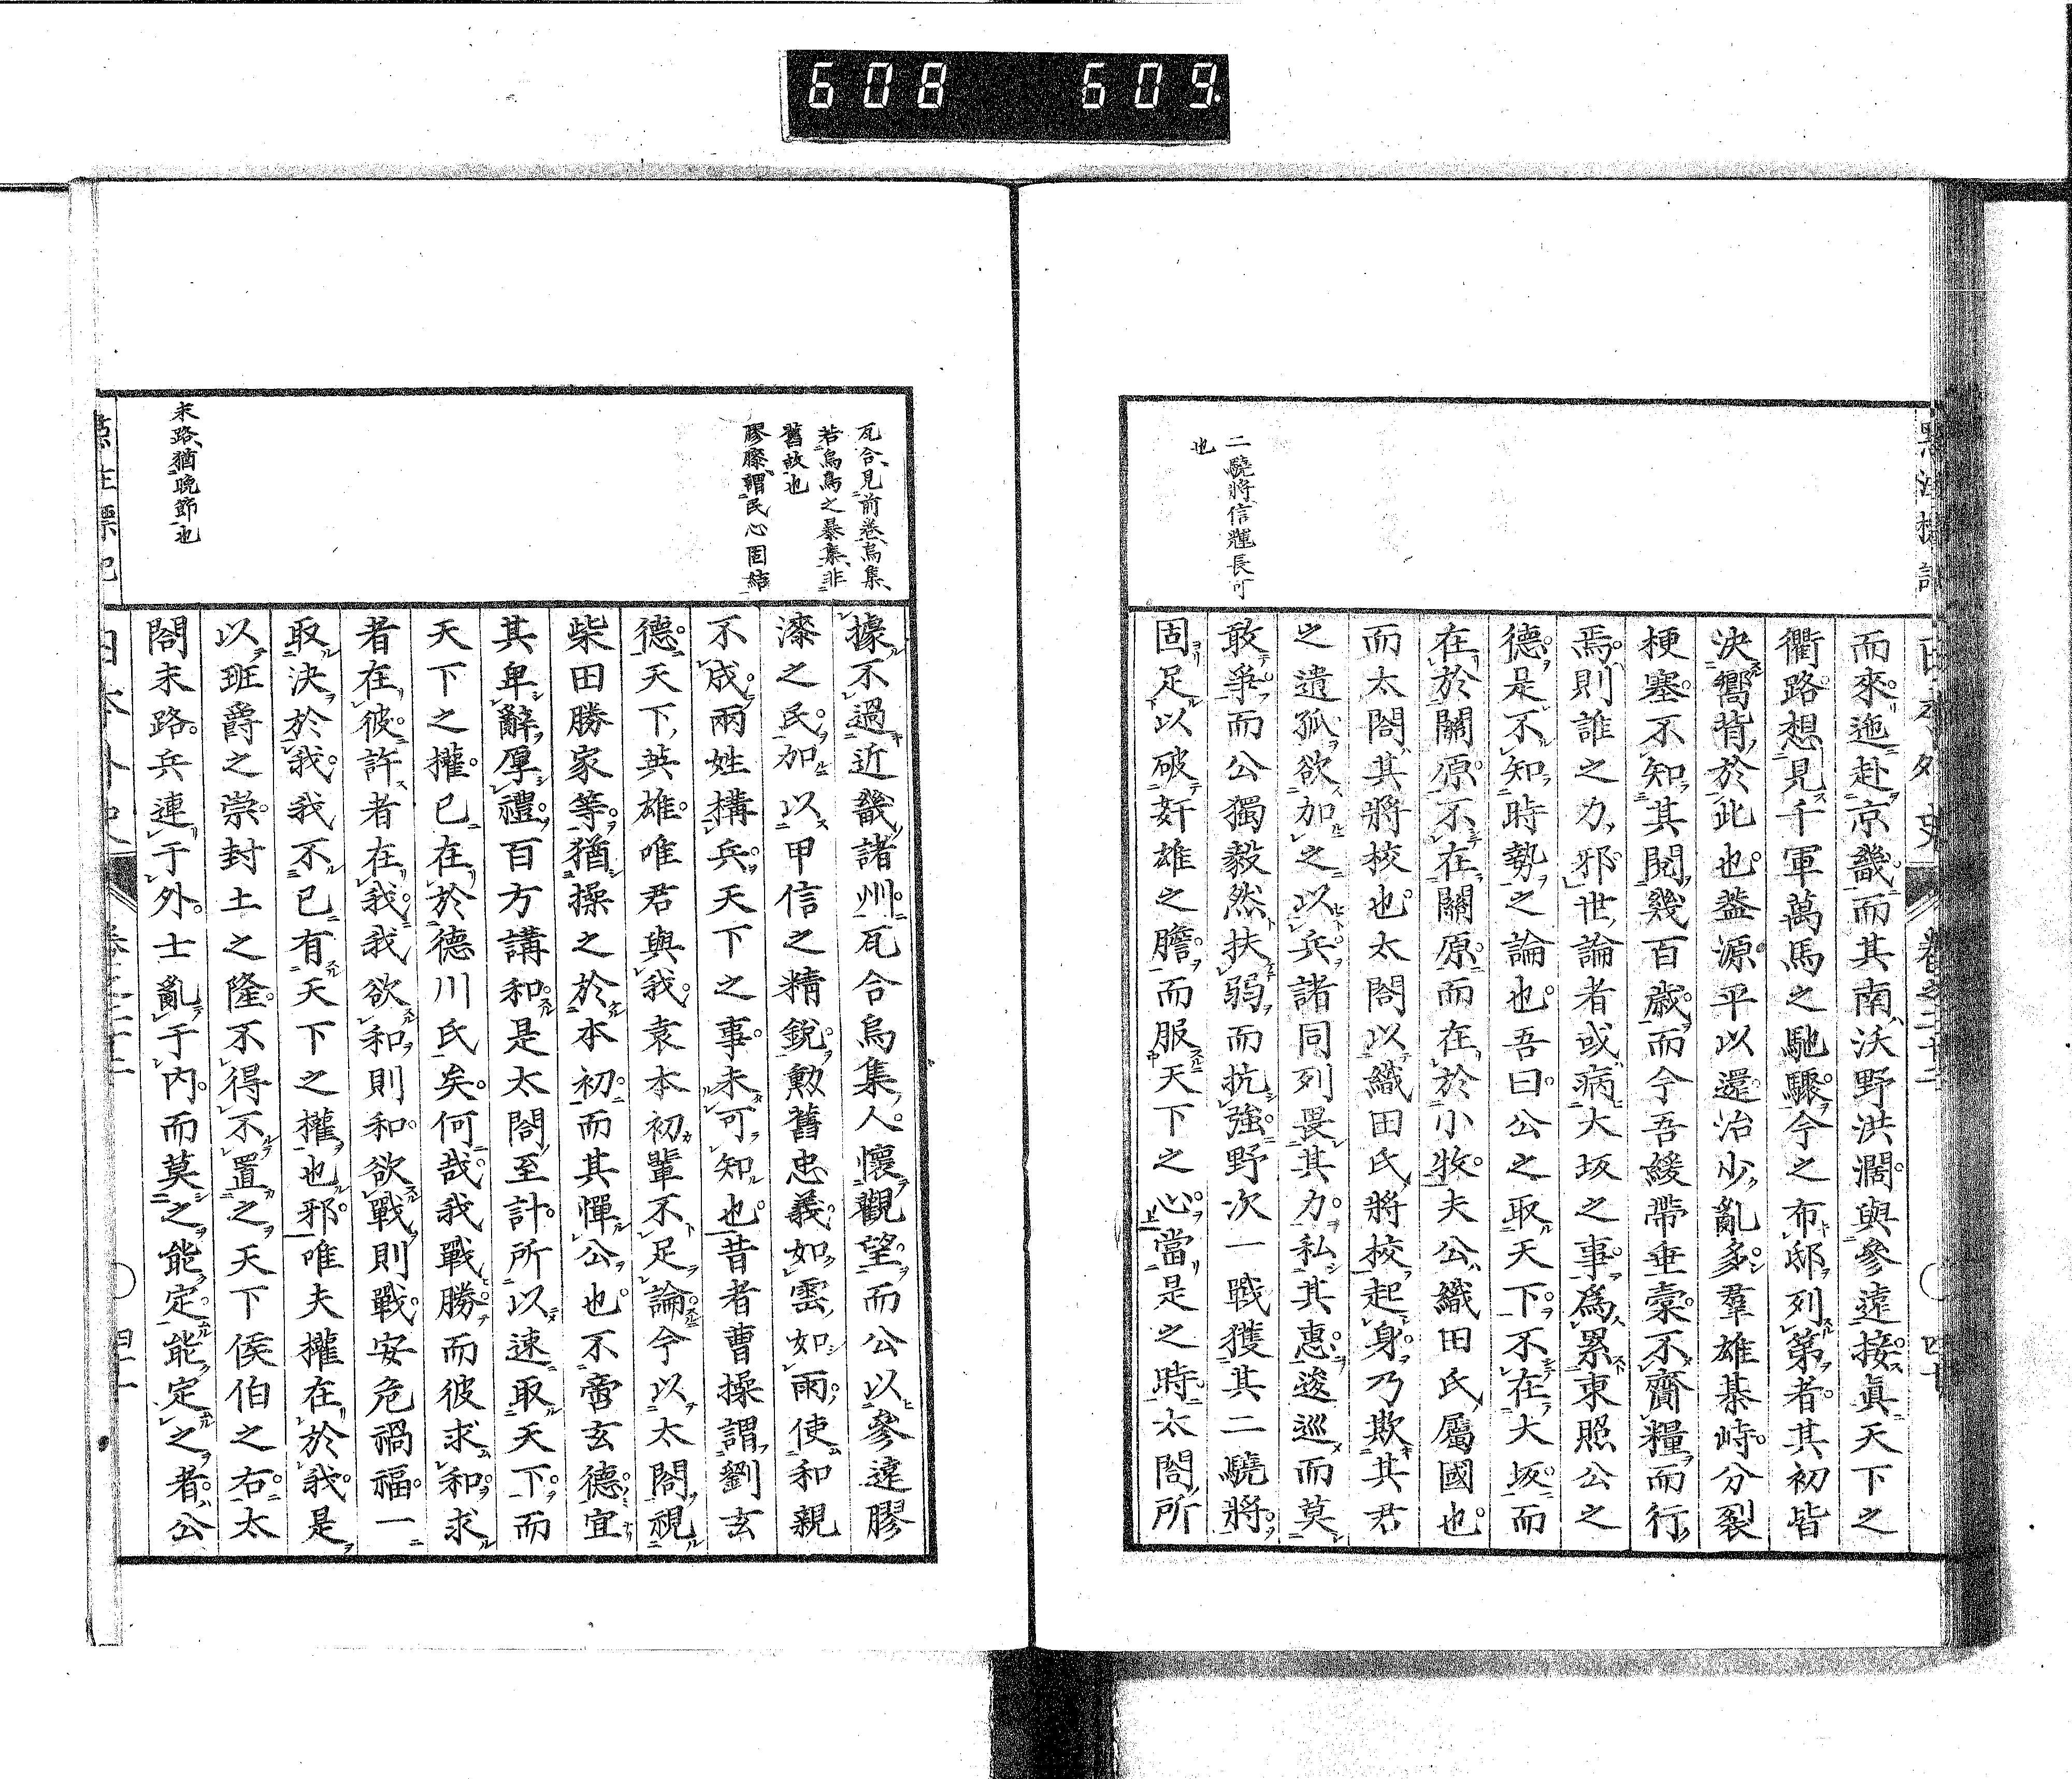 608 609
日本外史 卷之二十二 四十
二驍將信輝長可
也
而來迤赴京畿而其南沃野洪濶與參遠接眞天下之
衢路想見千軍萬馬之馳驟今之布邸列第者其初皆
決嚮背於此也蓋源平以還治少亂多羣雄棊峙分裂
梗塞不知其閱幾百歲而今吾緩帶垂橐不齎糧而行
焉則誰之力邪世論者或病大坂之事爲累東照公之
德是不知時勢之論也吾曰公之取天下不在大坂而
在於關原不在關原而在於小牧夫公織田氏屬國也
而太閤其將校也太閤以織田氏將校起身乃欺其君
之遺孤欲加之以兵諸同列畏其力私其惠逡巡而莫
敢爭而公獨毅然扶弱而抗強野次一戰獲其二驍將
固足以破奸雄之膽而服天下之心當是之時太閤所
瓦合見前卷烏集
若烏鳥之暴集非
舊故也
膠漆謂民心固結
末路猶晚節也
據不過近畿諸州瓦合烏集人懷觀望而公以參遠膠
漆之民加以甲信之精銳勲舊忠義如雲如雨使和親
不成兩姓構兵天下之事未可知也昔者曹操謂劉玄
德天下英雄唯君與我袁本初輩不足論今以太閤視
柴田勝家等猶操之於本初而其憚公也不啻玄德宜
其卑辭厚禮百方講和是太閤至計所以速取天下而
天下之權已在於德川氏矣何哉我戰勝而彼求和求
者在彼許者在我我欲和則和欲戰則戰安危禍福一
取決於我我不已有天下之權也邪唯夫權在於我是
以班爵之崇封土之隆不得不置之天下侯伯之右太
閤末路兵連于外士亂于內而莫之能定能定之者公